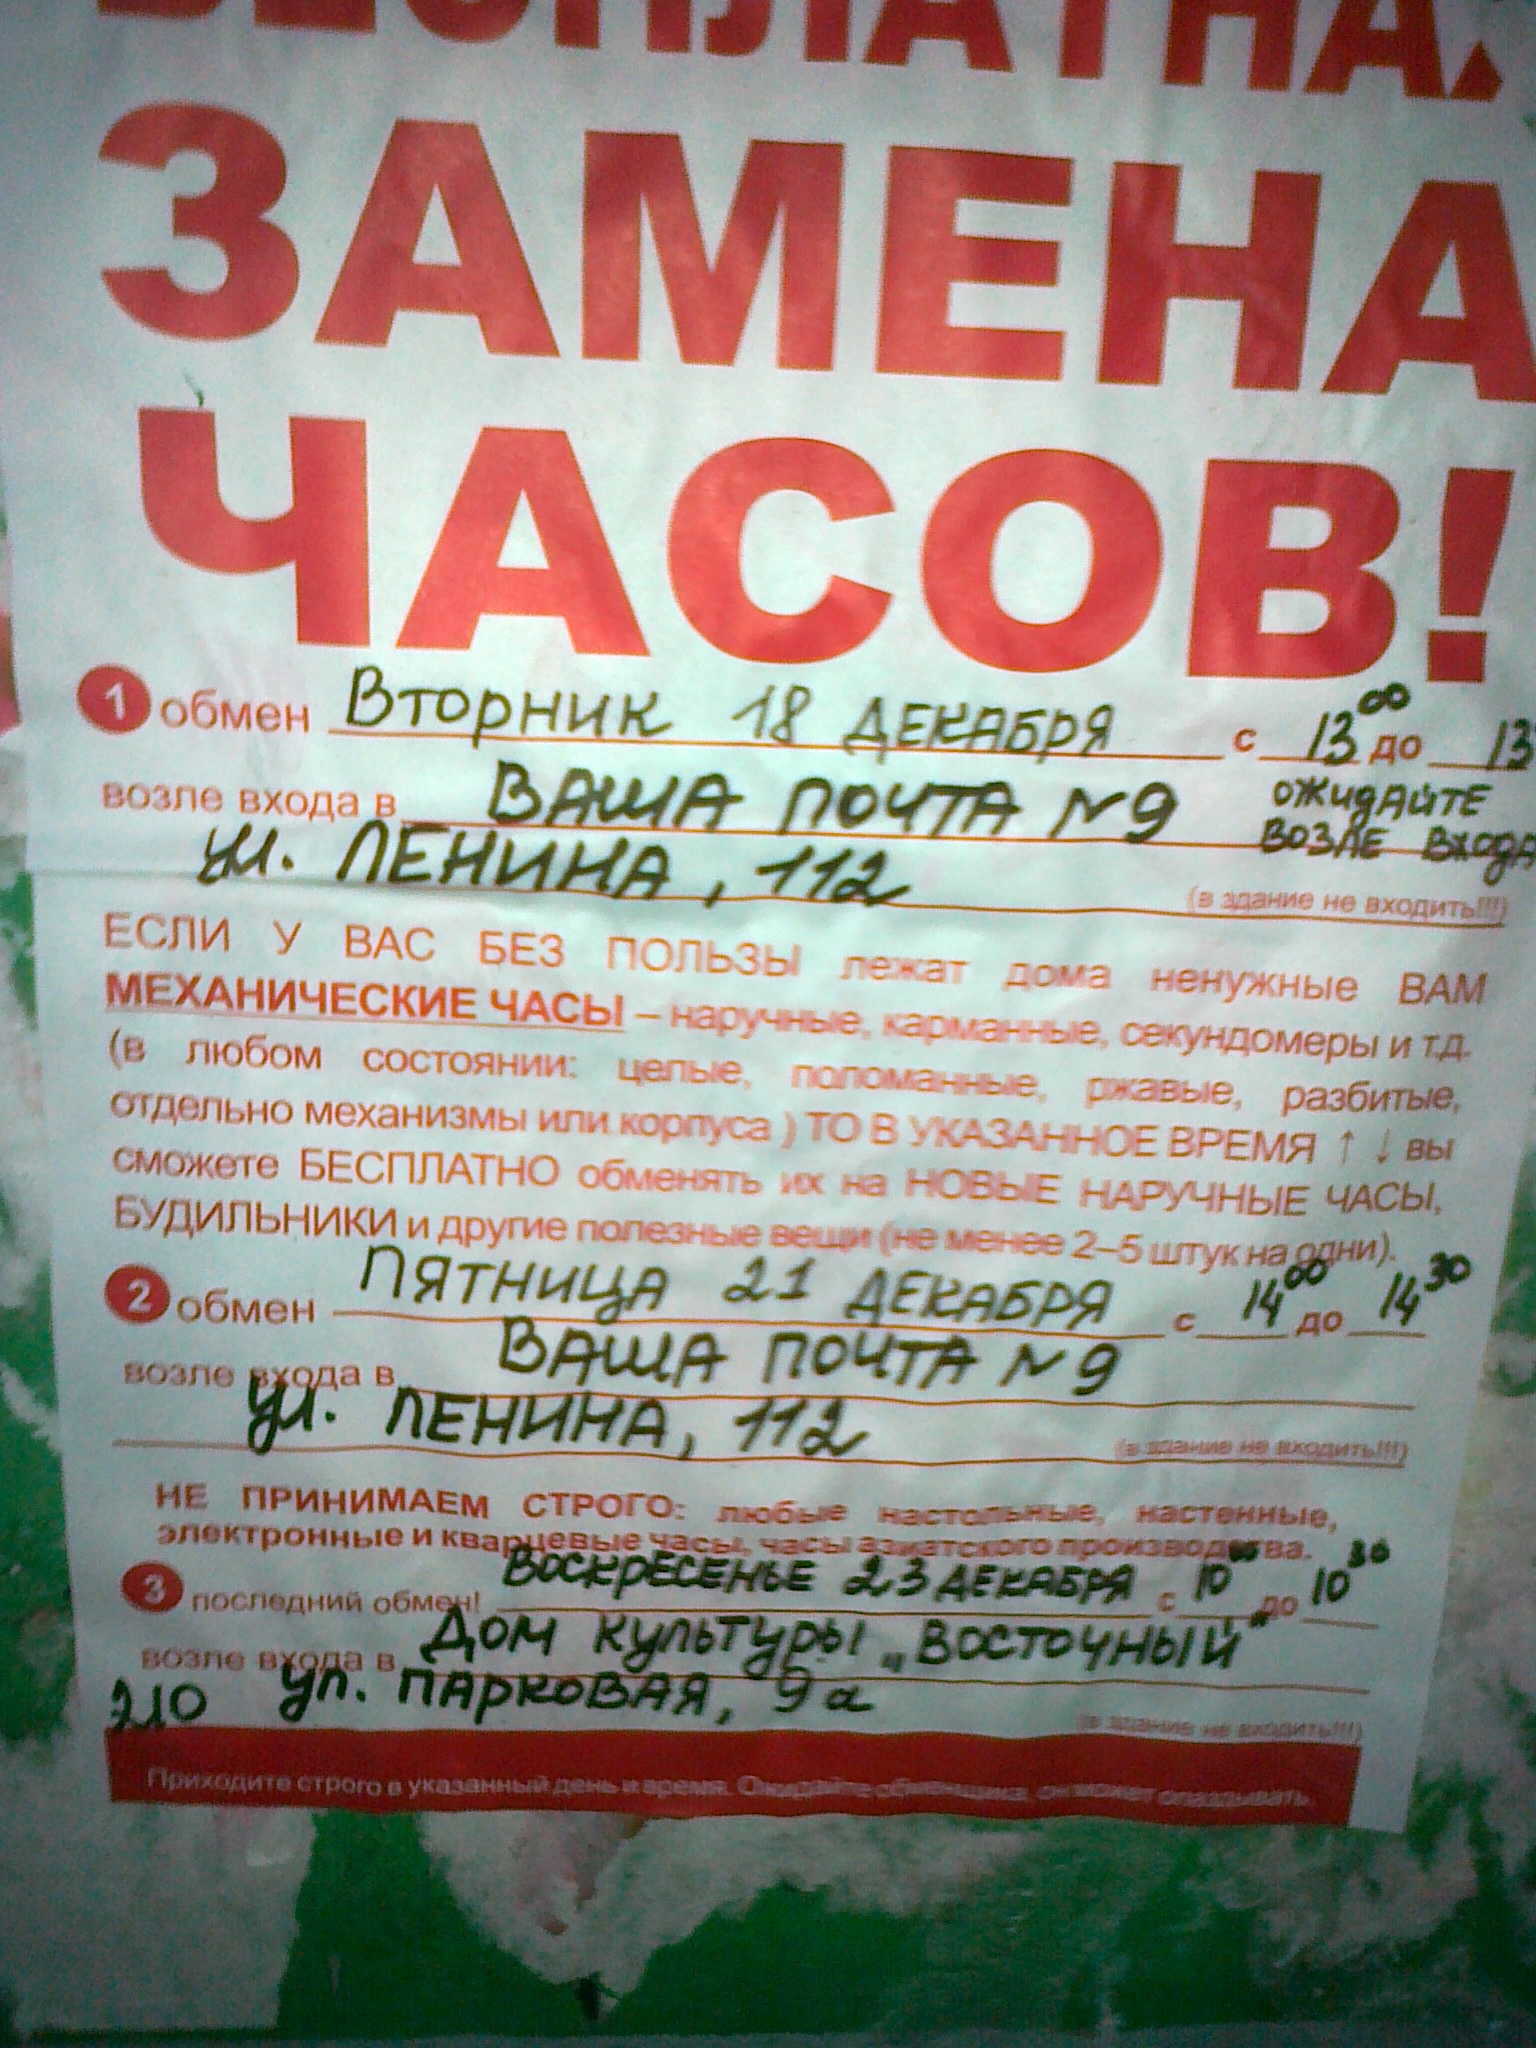 БЕСПЛАТНАЯ
ЗАМЕНА
ЧАСОВ!
1 обмен Вторник 18 ДЕКАБРЯ с 13⁰⁰ до 13
возле входа в ВАША ПОЧТА №9 ОЖИДАЙТЕ
ул. ЛЕНИНА, 112 ВОЗЛЕ ВХОДА
(в здание не входить!!!)
ЕСЛИ У ВАС БЕЗ ПОЛЬЗЫ лежат дома ненужные ВАМ
МЕХАНИЧЕСКИЕ ЧАСЫ – наручные, карманные, секундомеры и т.д.
(в любом состоянии: целые, поломанные, ржавые, разбитые,
отдельно механизмы или корпуса ) ТО В УКАЗАННОЕ ВРЕМЯ ↑ ↓ вы
сможете БЕСПЛАТНО обменять их на НОВЫЕ НАРУЧНЫЕ ЧАСЫ,
БУДИЛЬНИКИ и другие полезные вещи (не менее 2–5 штук на одни).
2 обмен ПЯТНИЦА 21 ДЕКАБРЯ с 14⁰⁰ до 14³⁰
возле входа в ВАША ПОЧТА №9
ул. ЛЕНИНА, 112 (в здание не входить!!!)
НЕ ПРИНИМАЕМ СТРОГО: любые настольные, настенные,
электронные и кварцевые часы, часы азиатского производства.
3 последний обмен! ВОСКРЕСЕНЬЕ 23 ДЕКАБРЯ с 10⁰⁰ до 10³⁰
возле входа в ДОМ КУЛЬТУРЫ „ВОСТОЧНЫЙ"
210 ул. ПАРКОВАЯ, 9а (в здание не входить!!!)
Приходите строго в указанный день и время. Ожидайте обменщика, он может опаздывать.